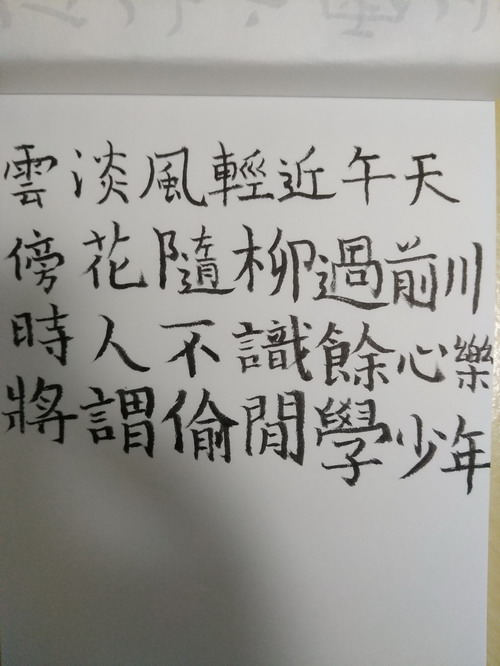 雲淡風輕近午天
傍花隨柳過前川
時人不識餘心樂
將謂偷閒學少年